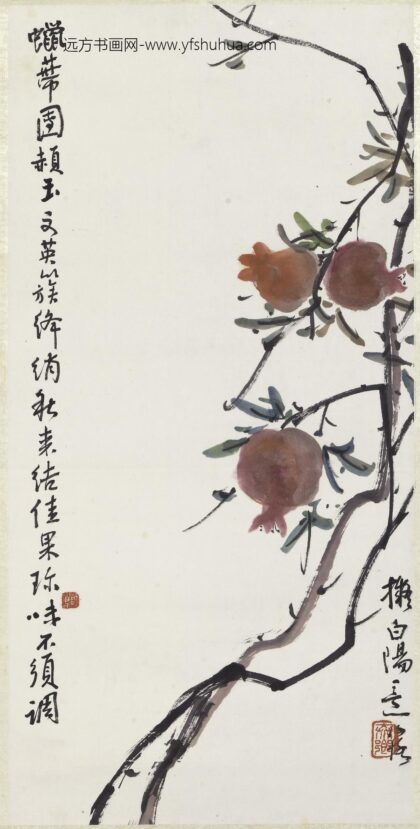 远方书画网-www.yfshuhua.com
蠟蒂團赬玉文英簇絳綃秋来結佳果珍味不須調
擬白陽意